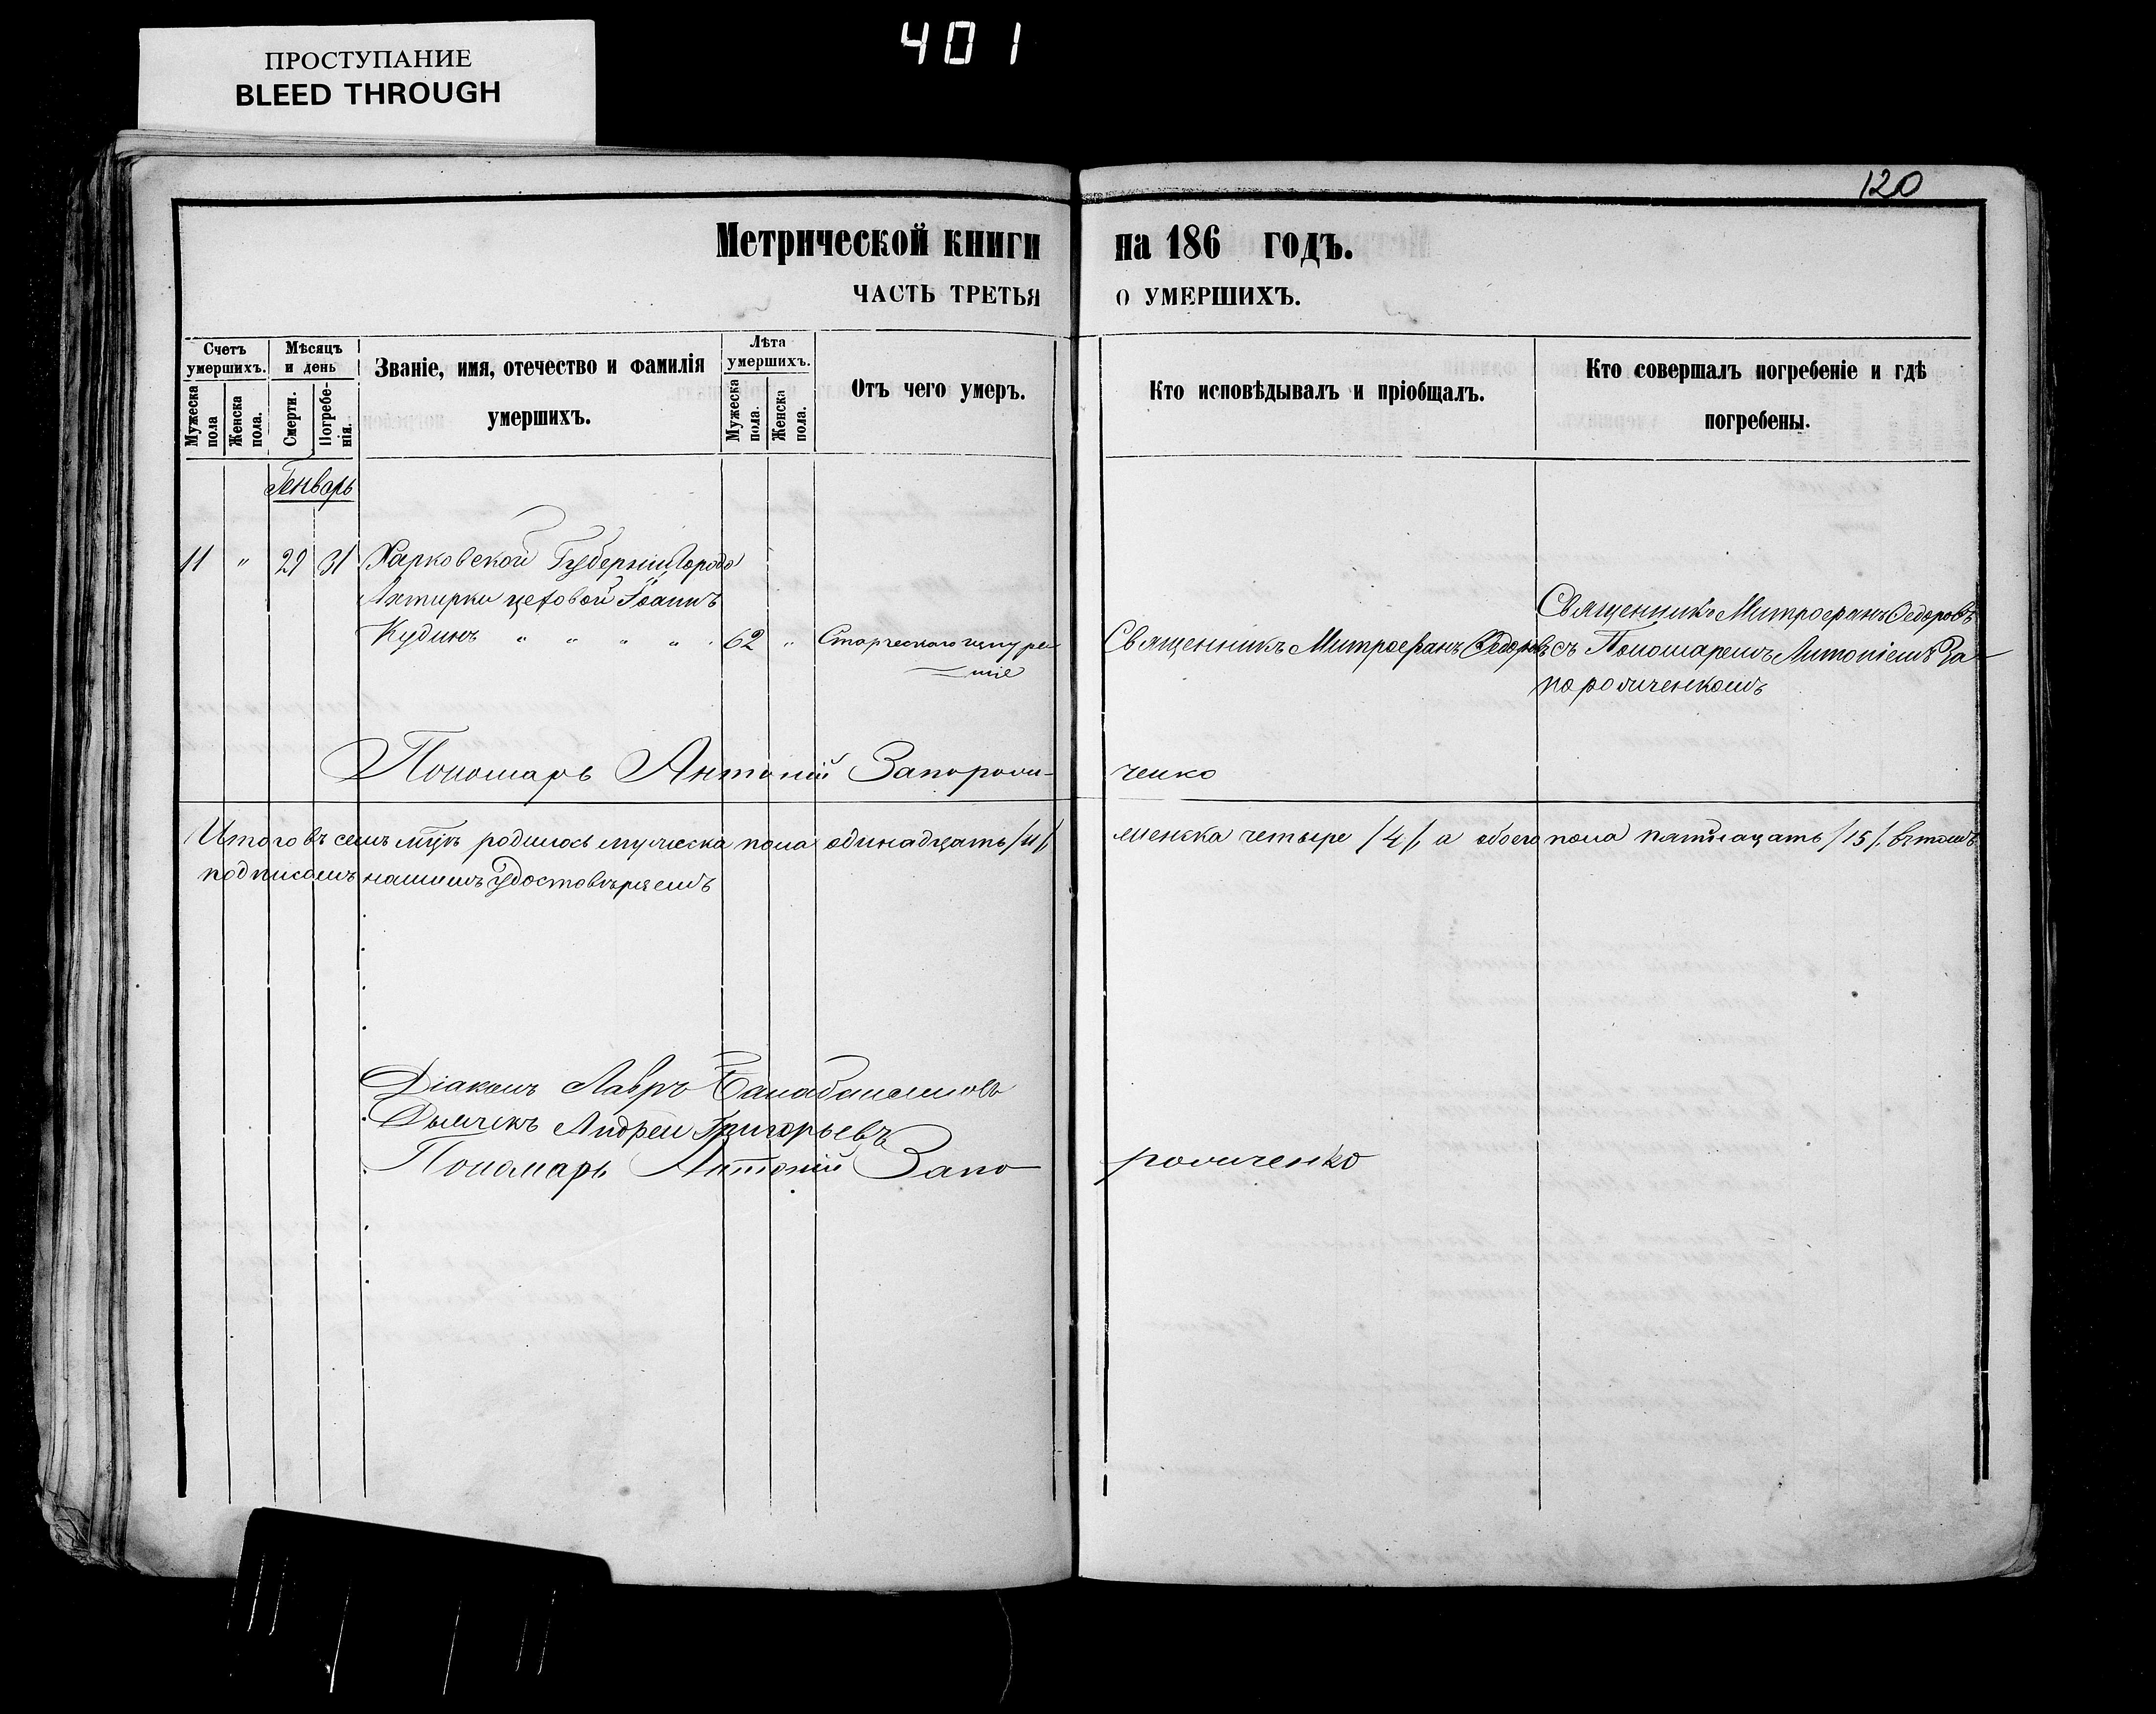 401
ПРОСТУПАНИЕ
BLEED THROUGH
120
Метрической книги на 186 годъ.
ЧАСТЬ ТРЕТЬЯ О УМЕРШИХЪ.
Счетъ умершихъ.
Мужеска пола
Женска пола.
Мѣсяцъ и день
Смерти.
Погребенія.
Званіе, имя, отечество и фамилія
умершихъ.
Лѣта умершихъ.
Мужеска пола.
Женска пола.
Отъ чего умеръ.
Кто исповѣдывалъ и пріобщалъ.
Кто совершалъ погребеніе и гдѣ
погребены.
Генварь
11 " 29 31 Харковской Губерніи Города
Ахтирки цеховой Іоаннъ
Кудинъ " " " " 62 "
Священникъ Митрофанъ Федоровъ
Священникъ Митрофанъ Федоровъ
съ Пономаремъ Антоніемъ За-
порожченкомъ
Пономарь Антоній Запорож- ченко
Итого въ семъ мцѣ родилось мужеска пола одинадцать /11/, женска четыре /4/, а обоего пола пятнацать /15/, въ томъ
подписомъ нашимъ удостовѣряемъ
Діаконъ Лавръ
Дьячекъ Андрей Григорьевъ
Пономарь Антоній Запо рожченко